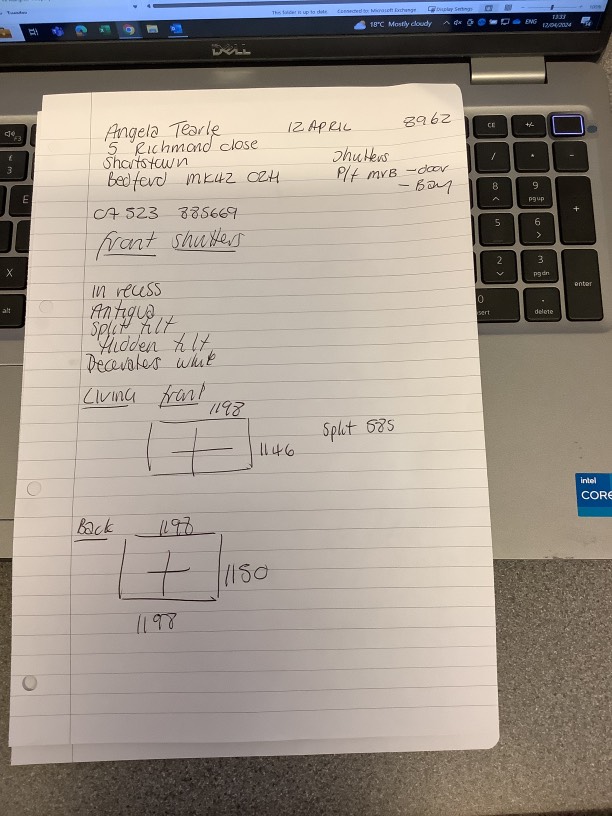 This file is up to date
Connected to: Microsoft Exchange
Display Settings
18°C Mostly cloudy
ENG
13:33
12/04/2024
DELL
Angela Tearle 12 APRIL 8962
5 Richmond close
Shortstown Shutters
Bedford MK42 P/f MVB - door
- Bay
885669
front shutters
In recess
Antigua
Split tilt
Hidden tilt
Decorators white
Living front
1198
1146 Split 585
Back 1198
1150
1198
F3
£
3
E
X
alt
CE
+/-
/
*
-
8
9
pg up
+
5
6
2
3
pg dn
enter
0
.
delete
intel
CORE